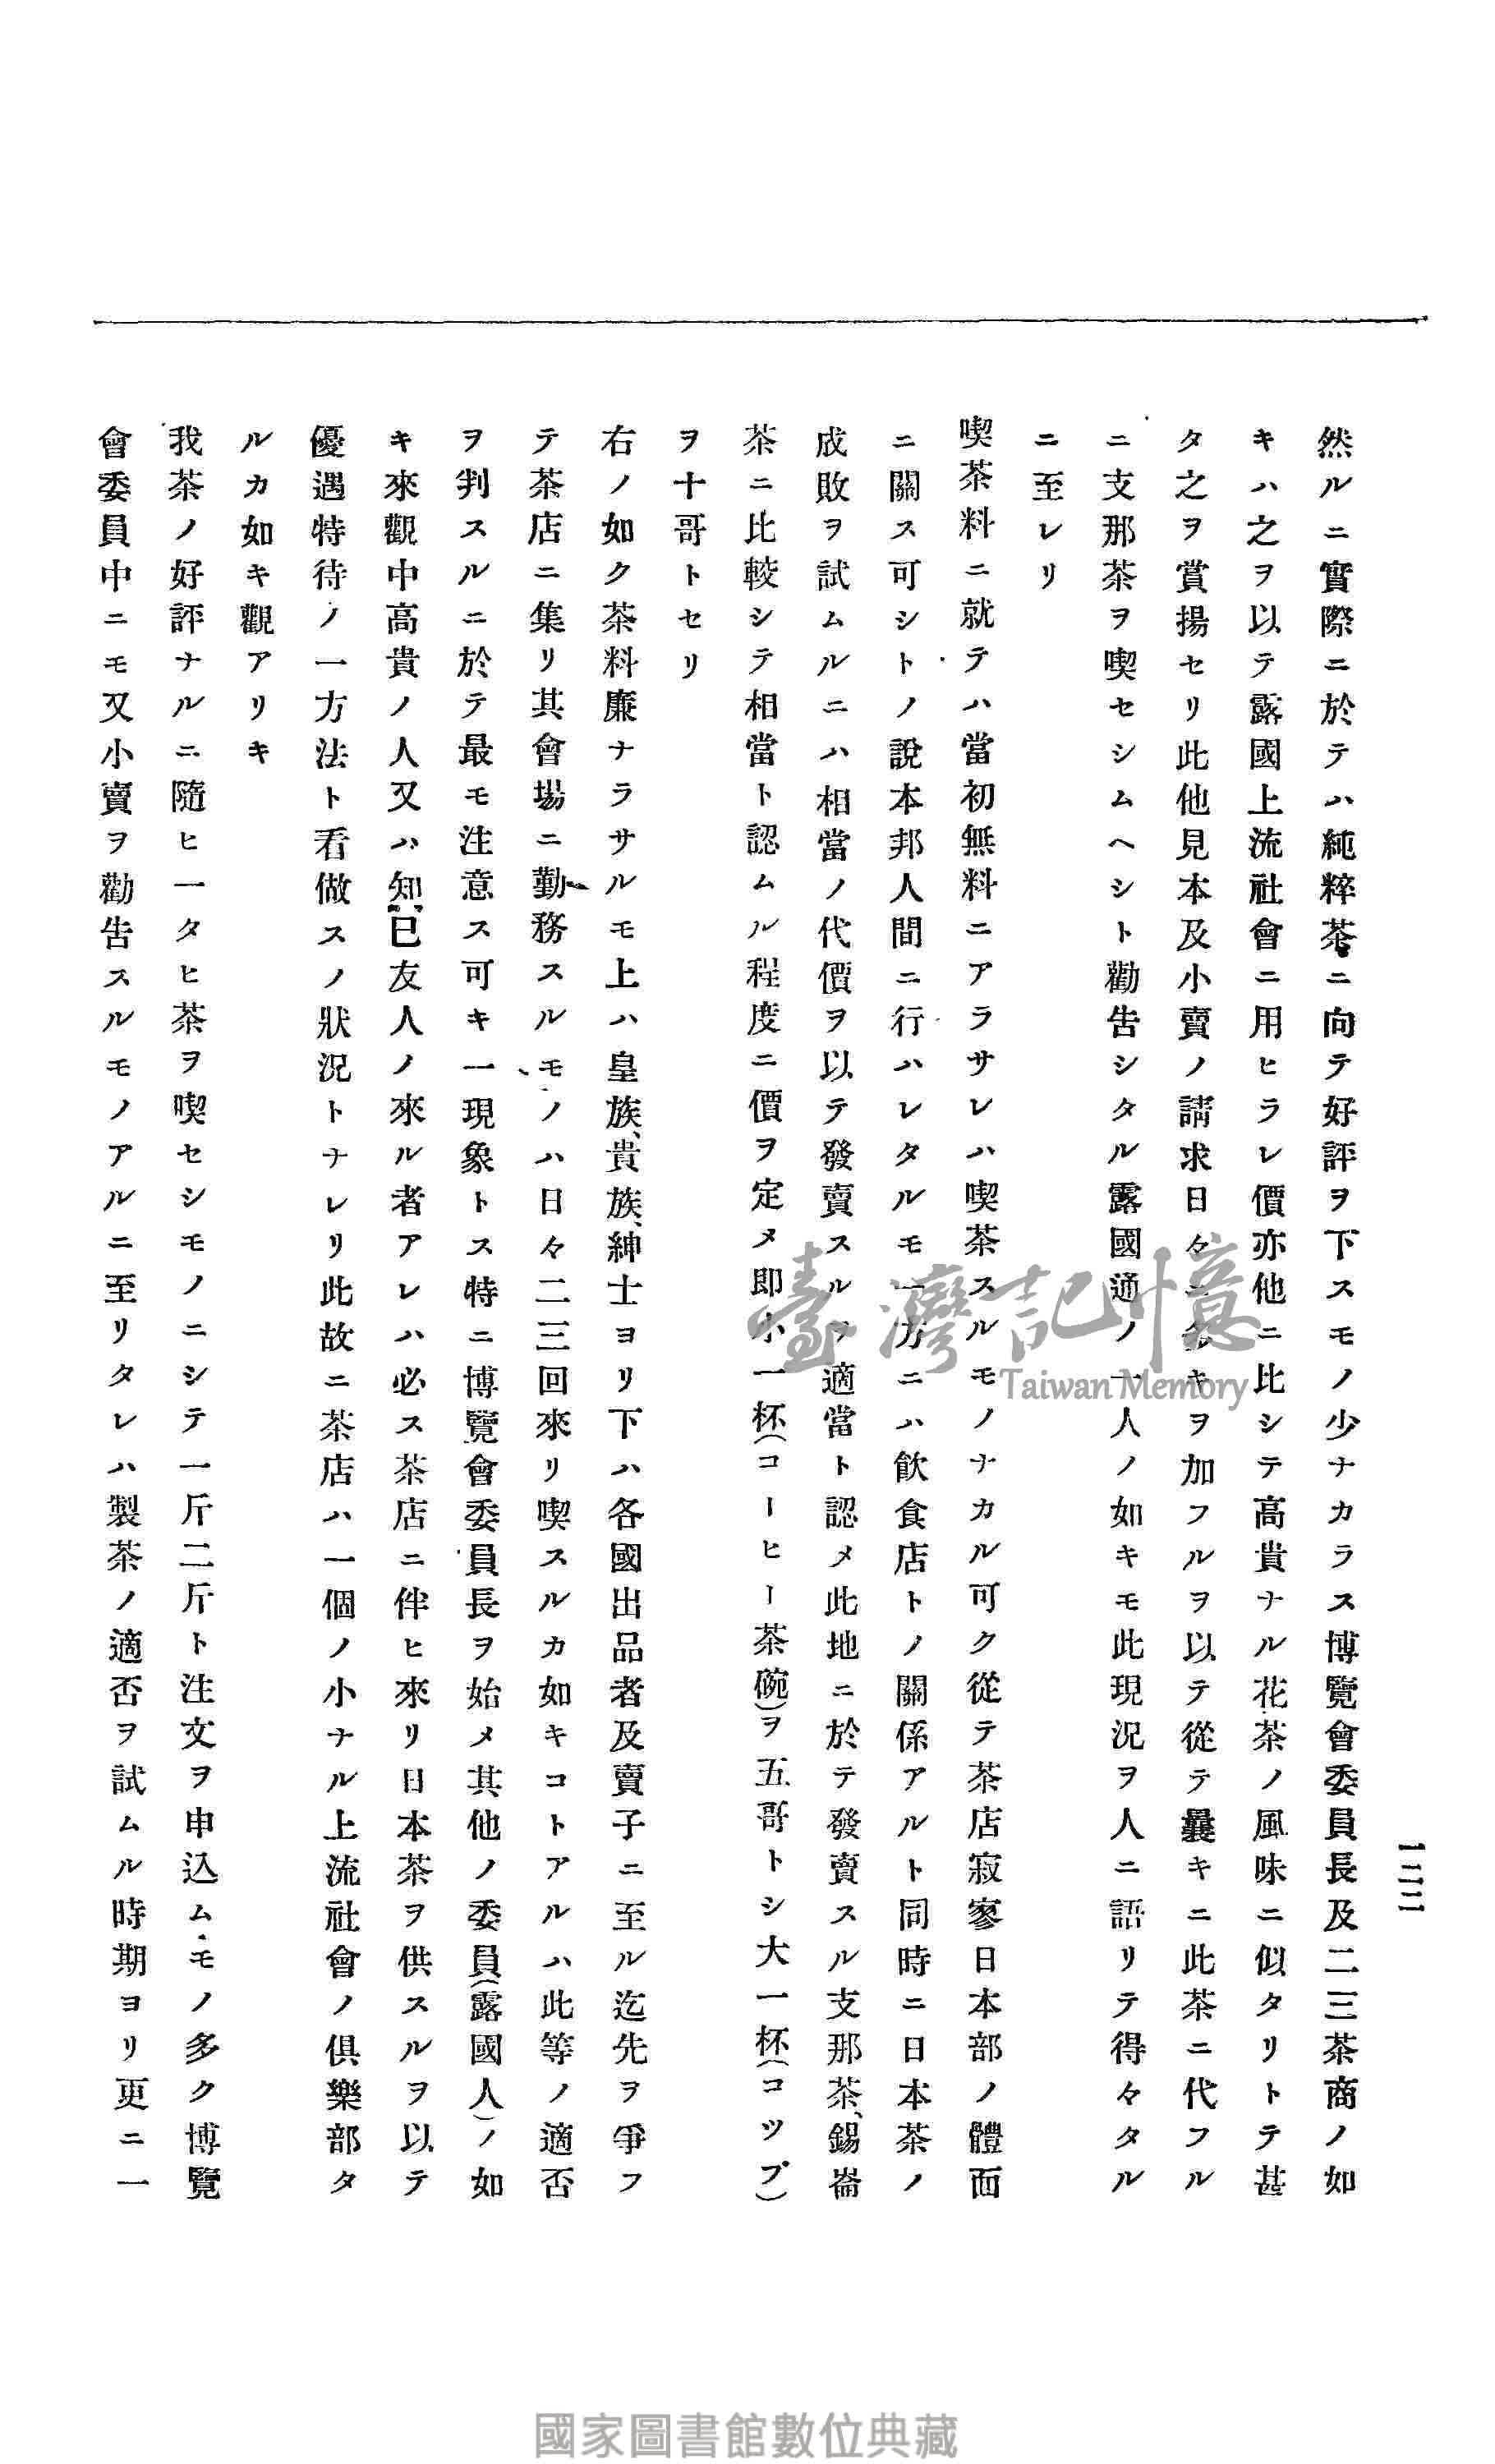 一三二
然ルニ實際ニ於テハ純粹茶ニ向テ好評ヲ下スモノ少ナカラス博覽會委員長及二三茶商ノ如
キハ之ヲ以テ露國上流社會ニ用ヒラレ價亦他ニ比シテ高貴ナル花茶ノ風味ニ似タリトテ甚
タ之ヲ賞揚セリ此他見本及小賣ノ請求日々ニ多キヲ加フルヲ以テ從テ曩キニ此茶ニ代フル
ニ支那茶ヲ喫セシムヘシト勸告シタル露國通ノ一人ノ如キモ此現況ヲ人ニ語リテ得々タル
ニ至レリ
喫茶料ニ就テハ當初無料ニアラサレハ喫茶スルモノナカル可ク從テ茶店寂寥日本部ノ體面
ニ關ス可シトノ說本邦人間ニ行ハレタルモ一方ニハ飮食店トノ關係アルト同時ニ日本茶ノ
成敗ヲ試ムルニハ相當ノ代價ヲ以テ發賣スルヲ適當ト認メ此地ニ於テ發賣スル支那茶、錫崙
茶ニ比較シテ相當ト認ムル程度ニ價ヲ定メ即小一杯(コーヒー茶碗)ヲ五哥トシ大一杯(コツプ)
ヲ十哥トセリ
右ノ如ク茶料廉ナラサルモ上ハ皇族、貴族、紳士ヨリ下ハ各國出品者及賣子ニ至ル迄先ヲ爭フ
テ茶店ニ集リ其會場ニ勤務スルモノハ日々二三回來リ喫スルカ如キコトアルハ此等ノ適否
ヲ判スルニ於テ最モ注意ス可キ一現象トス特ニ博覽會委員長ヲ始メ其他ノ委員(露國人)ノ如
キ來觀中高貴ノ人又ハ知己友人ノ來ル者アレハ必ス茶店ニ伴ヒ來リ日本茶ヲ供スルヲ以テ
優遇特待ノ一方法ト看做スノ狀況トナレリ此故ニ茶店ハ一個ノ小ナル上流社會ノ俱樂部タ
ルカ如キ觀アリキ
我茶ノ好評ナルニ隨ヒ一タヒ茶ヲ喫セシモノニシテ一斤二斤ト注文ヲ申込ムモノ多ク博覽
會委員中ニモ又小賣ヲ勸告スルモノアルニ至リタレハ製茶ノ適否ヲ試ムル時期ヨリ更ニ一
臺灣記憶
Taiwan Memory
國家圖書館數位典藏